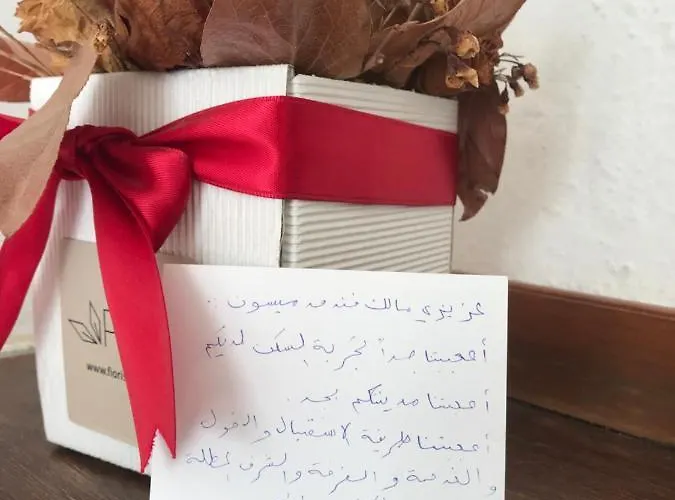 عزيزي مالك فندق ميسون :
أعجبتنا جداً تجربة السكن لديكم
أعجبتنا مدينتكم بحد .
أعجبتنا طريقة الاستقبال والدخول
والخدمة و الغرفة والشرفة المطلة
www.fioris